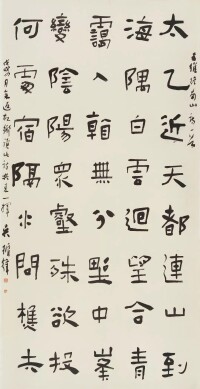 太乙近天都連山到
海隅白雲迴望合青
靄入看無分埜中峯
變陰陽衆壑殊欲投
何處宿隔水問樵夫
王維終南山詩一首